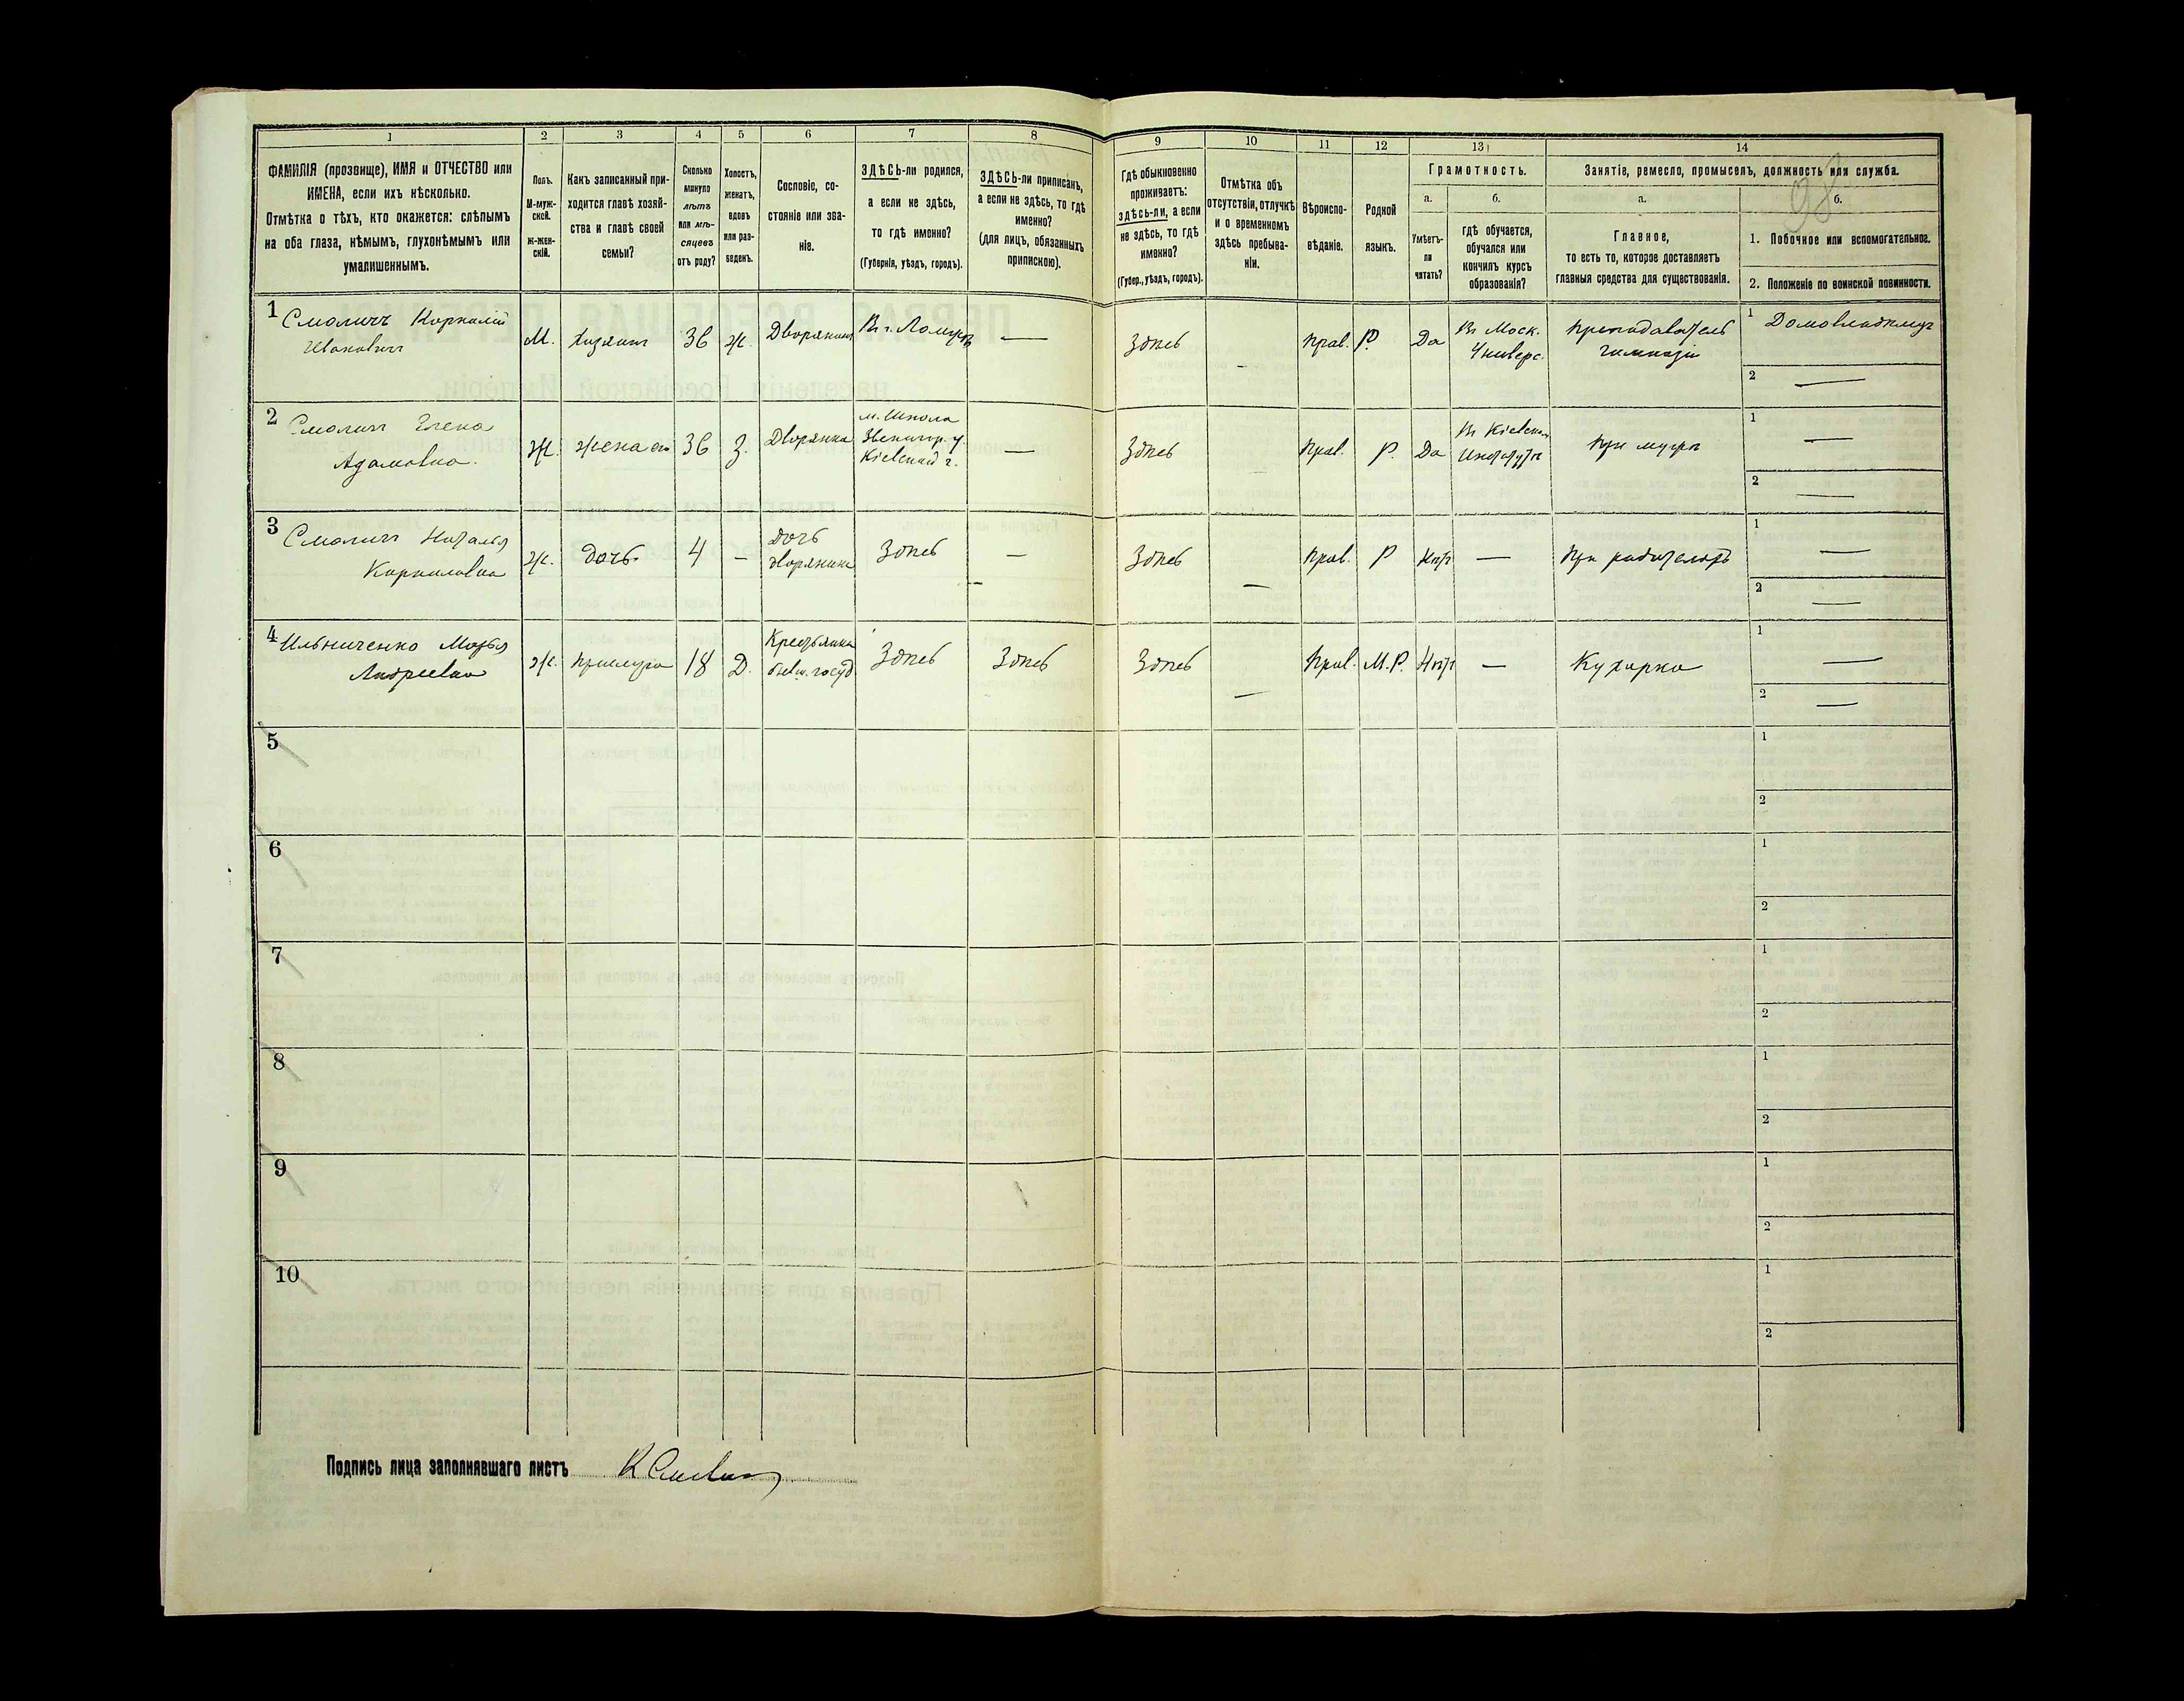 1 2 3 4 5 6 7 8 9 10 11 12 13 14
ФАМИЛІЯ (прозвище), ИМЯ и ОТЧЕСТВО или
ИМЕНА, если ихъ нѣсколько.
Отмѣтка о тѣхъ, кто окажется: слѣпымъ
на оба глаза, нѣмымъ, глухонѣмымъ или
умалишеннымъ.
Полъ.
М-муж-
ской.
Ж-жен-
скій.
Какъ записанный при-
ходится главѣ хозяй-
ства и главѣ своей
семьи?
Сколько
минуло
лѣтъ
или мѣ-
сяцевъ
отъ роду?
Холостъ,
женатъ,
вдовъ
или раз-
веденъ.
Сословіе, со-
стояніе или зва-
ніе.
ЗДѢСЬ-ли родился,
а если не здѣсь,
то гдѣ именно?
(Губернія, уѣздъ, городъ).
ЗДѢСЬ-ли приписанъ,
а если не здѣсь, то гдѣ
именно?
(для лицъ, обязанныхъ
припискою).
Гдѣ обыкновенно
проживаетъ:
здѣсь-ли, а если
не здѣсь, то гдѣ
именно?
(Губер., уѣздъ, городъ).
Отмѣтка объ
отсутствіи, отлучкѣ
и о временномъ
здѣсь пребыва-
ніи.
Вѣроиспо-
вѣданіе.
Родной
языкъ.
Грамотность.
а.
Умѣетъ-
ли
читать?
б.
гдѣ обучается,
обучался или
кончилъ курсъ
образованія?
Занятіе, ремесло, промыселъ, должность или служба.
98
а.
Главное,
то есть то, которое доставляетъ
главныя средства для существованія.
б.
1. Побочное или вспомогательное.
2. Положеніе по воинской повинности.
1 Смоличъ Корнилій
Ивановичъ
М.
Хозяинъ
36
Ж.
Дворянинъ
—
Здѣсь
Прав.
Р.
Да
Въ Моск.
Универс.
Преподаватель
гимназіи
1 Домовладѣлецъ
2 —
2 Смоличъ Елена
Адамовна.
Ж.
жена его
36
З.
Дворянка
м. Шпола
Звенигор. у.
Кіевской г.
—
Здѣсь
Прав.
Р.
Да
Въ Кіевском
Институтѣ
При мужѣ
1 —
2 —
3 Смоличъ Наталья
Корниловна
Ж.
дочь
4
—
дочь
дворянина
Здѣсь
—
Здѣсь
—
Прав.
Р
Нѣтъ
—
При родителяхъ
1 —
2 —
4 Ильниченко Марья
Андреевна
Ж.
прислуга
18
Д.
Крестьянка
бывш. госуд
Здѣсь
Здѣсь
Здѣсь
—
Прав.
М.Р.
Нѣтъ
—
Кухарка
1 —
2 —
5
1
2
6
1
2
7
1
2
8
1
2
9
1
2
10
1
2
Подпись лица заполнявшаго листъ К Смолич